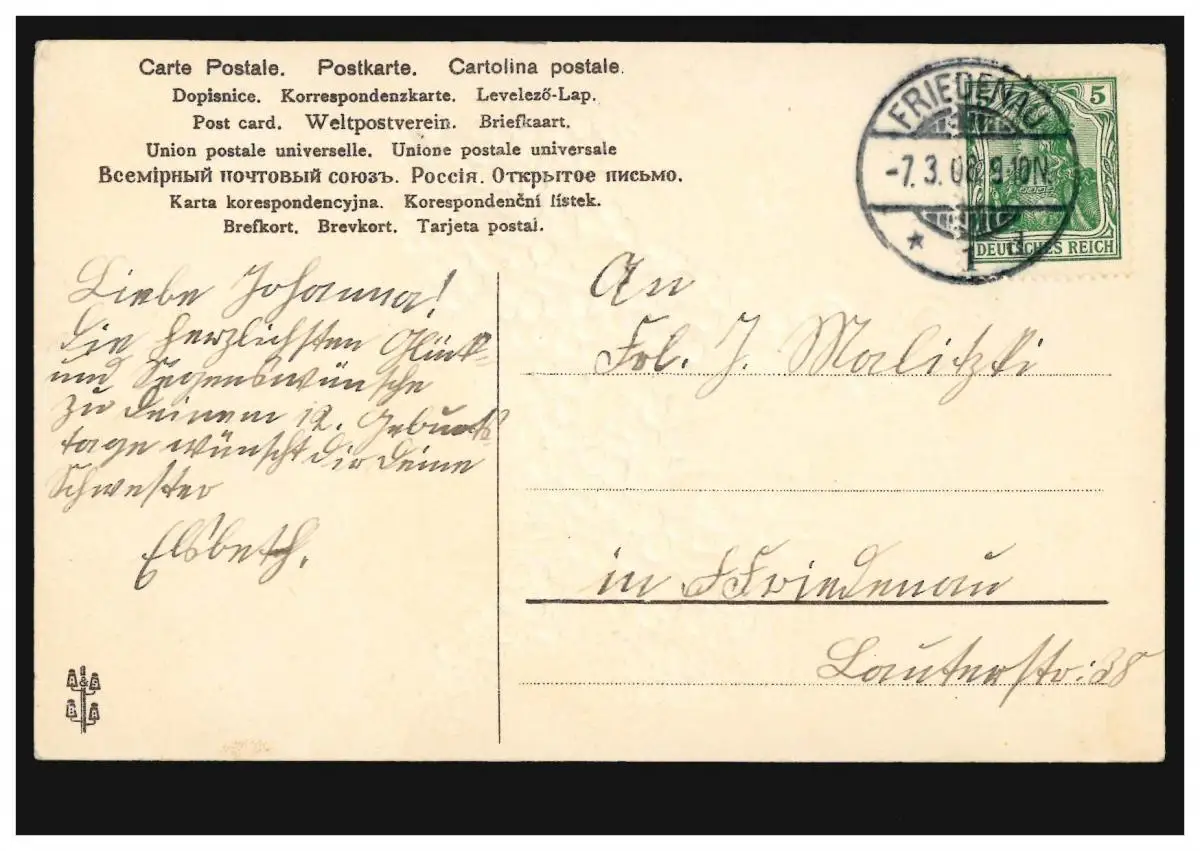 Carte Postale. Postkarte. Cartolina postale.
Dopisnice. Korrespondenzkarte. Levelező-Lap.
Post card. Weltpostverein. Briefkaart.
Union postale universelle. Unione postale universale
Всемірный почтовый союзъ. Россія. Открытое письмо.
Karta korespondencyjna. Korespondenční lístek.
Brefkort. Brevkort. Tarjeta postal.
FRIEDENAU
-7.3.08.9-10N.
* 1 d
5
DEUTSCHES REICH
Liebe Johanna!
Die herzlichsten Glück-
und Segenswünsche
zu deinem 12. Geburts
tage wünscht dir deine
Schwester
Elsbeth.
An
Frl. J. Malitzki
in Friedenau
Lauterstr: 38
A & S
B A